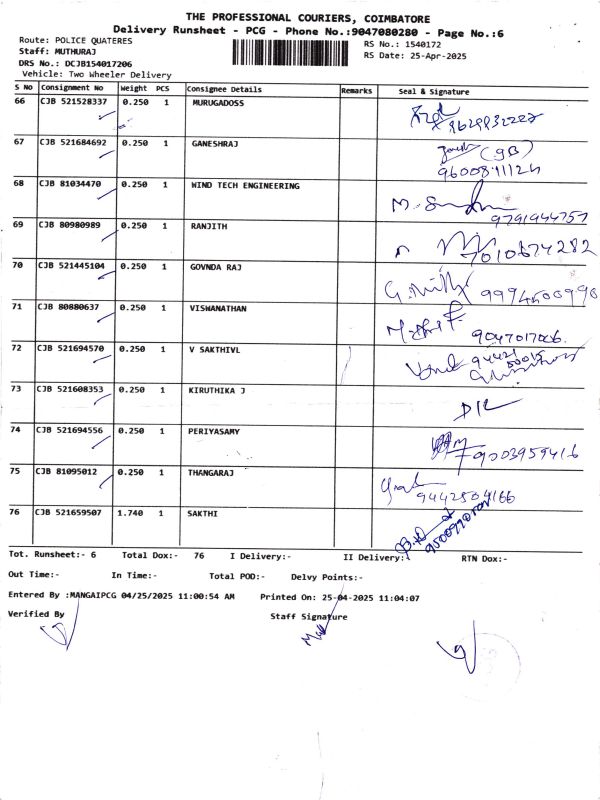 THE PROFESSIONAL COURIERS, COIMBATORE
Delivery Runsheet - PCG - Phone No.:9047080280 - Page No.:6
Route: POLICE QUATERES
RS No.: 1540172
Staff: MUTHURAJ
RS Date: 25-Apr-2025
DRS No.: DCJB154017206
Vehicle: Two Wheeler Delivery
S No Consignment No Weight PCS Consignee Details Remarks Seal & Signature
66 CJB 521528337 0.250 1 MURUGADOSS
67 CJB 521684692 0.250 1 GANESHRAJ
(GB)
68 CJB 81034470 0.250 1 WIND TECH ENGINEERING
9791944757
69 CJB 80980989 0.250 1 RANJITH
70 CJB 521445104 0.250 1 GOVNDA RAJ
71 CJB 80880637 0.250 1 VISWANATHAN
72 CJB 521694570 0.250 1 V SAKTHIVL
73 CJB 521608353 0.250 1 KIRUTHIKA J
D/L
74 CJB 521694556 0.250 1 PERIYASAMY
9003959416
75 CJB 81095012 0.250 1 THANGARAJ
76 CJB 521659507 1.740 1 SAKTHI
Tot. Runsheet:- 6 Total Dox:- 76 I Delivery:- II Delivery:- RTN Dox:-
Out Time:- In Time:- Total POD:- Delvy Points:-
Entered By :MANGAIPCG 04/25/2025 11:00:54 AM Printed On: 25-04-2025 11:04:07
Verified By Staff Signature